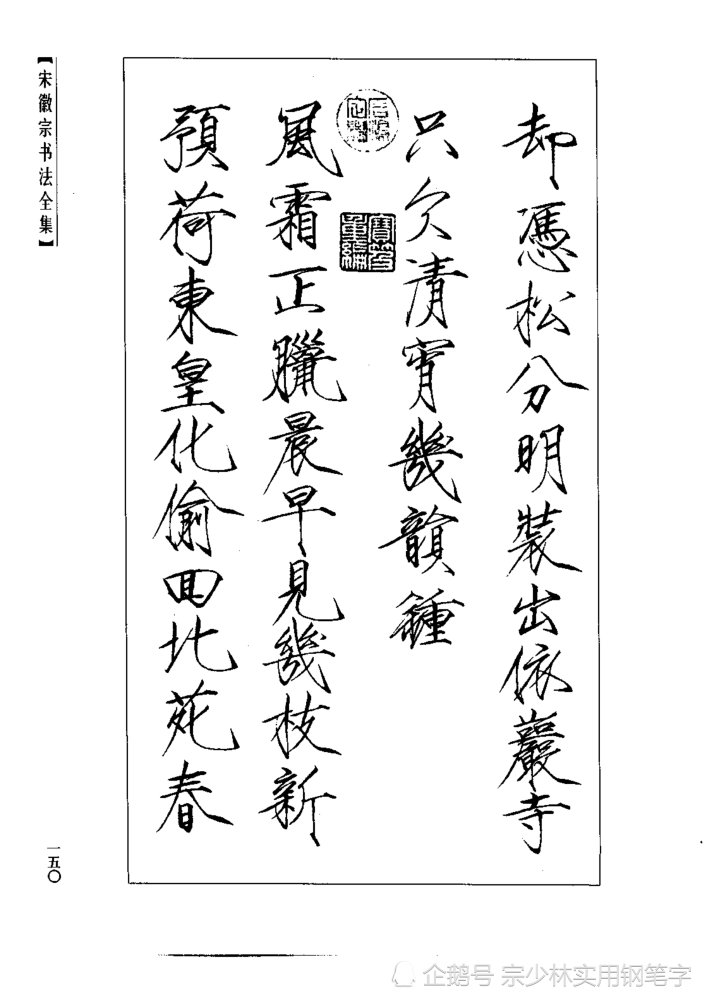 却憑松分明裝出依巖寺
只欠清宵幾韻鍾
寶笈重編
風霜正臘晨早見幾枝新
預荷東皇化偷囬北苑春
【宋徽宗书法全集】
一五〇
企鹅号 宗少林实用钢笔字